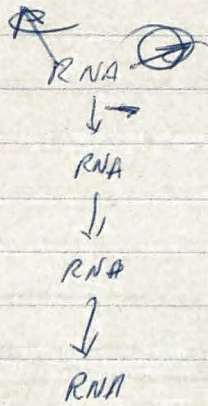 RNA
RNA
RNA
RNA